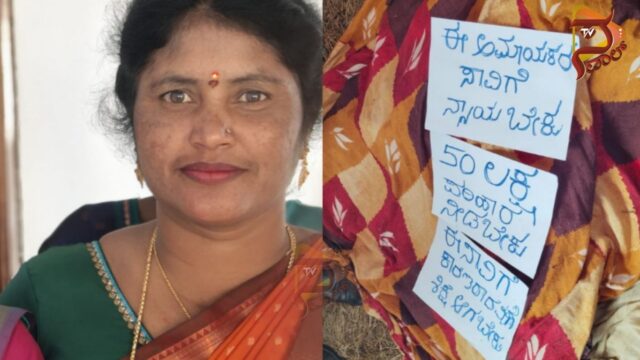 ಈ ಅಮಾಯಕರ
ಸಾವಿಗೆ
ನ್ಯಾಯ ಬೇಕು
50 ಲಕ್ಷ
ಪರಿಹಾರ
ನೀಡಬೇಕು
ಈ ಸಾವಿಗೆ
ಕಾರಣರಾದವರಿಗೆ
ಶಿಕ್ಷೆ ಆಗಬೇಕು
TV